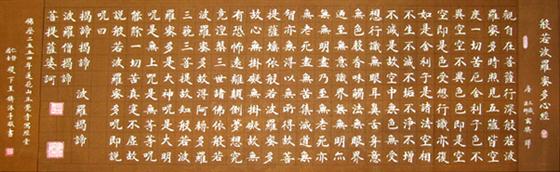 般若波羅蜜多心經
唐三藏法師玄奘譯
觀自在菩薩行深般若波
羅蜜多時照見五蘊皆空
度一切苦厄舍利子色不
異空空不異色色即是空
空即是色受想行識亦復
如是舍利子是諸法空相
不生不滅不垢不淨不增
不減是故空中無色無受
想行識無眼耳鼻舌身意
無色聲香味觸法無眼界
乃至無意識界無無明亦
無無明盡乃至無老死亦
無老死盡無苦集滅道無
智亦無得以無所得故菩
提薩埵依般若波羅蜜多
故心無掛礙無掛礙故無
有恐怖遠離顛倒夢想究
竟涅槃三世諸佛依般若
波羅蜜多故得阿耨多羅
三藐三菩提故知般若波
羅蜜多是大神呪是大明
呪是無上呪是無等等呪
能除一切苦真實不虛故
說般若波羅蜜多呪即說
呪曰
揭諦揭諦 波羅揭諦
波羅僧揭諦
菩提薩婆訶
佛歷二五五四年蓮花山